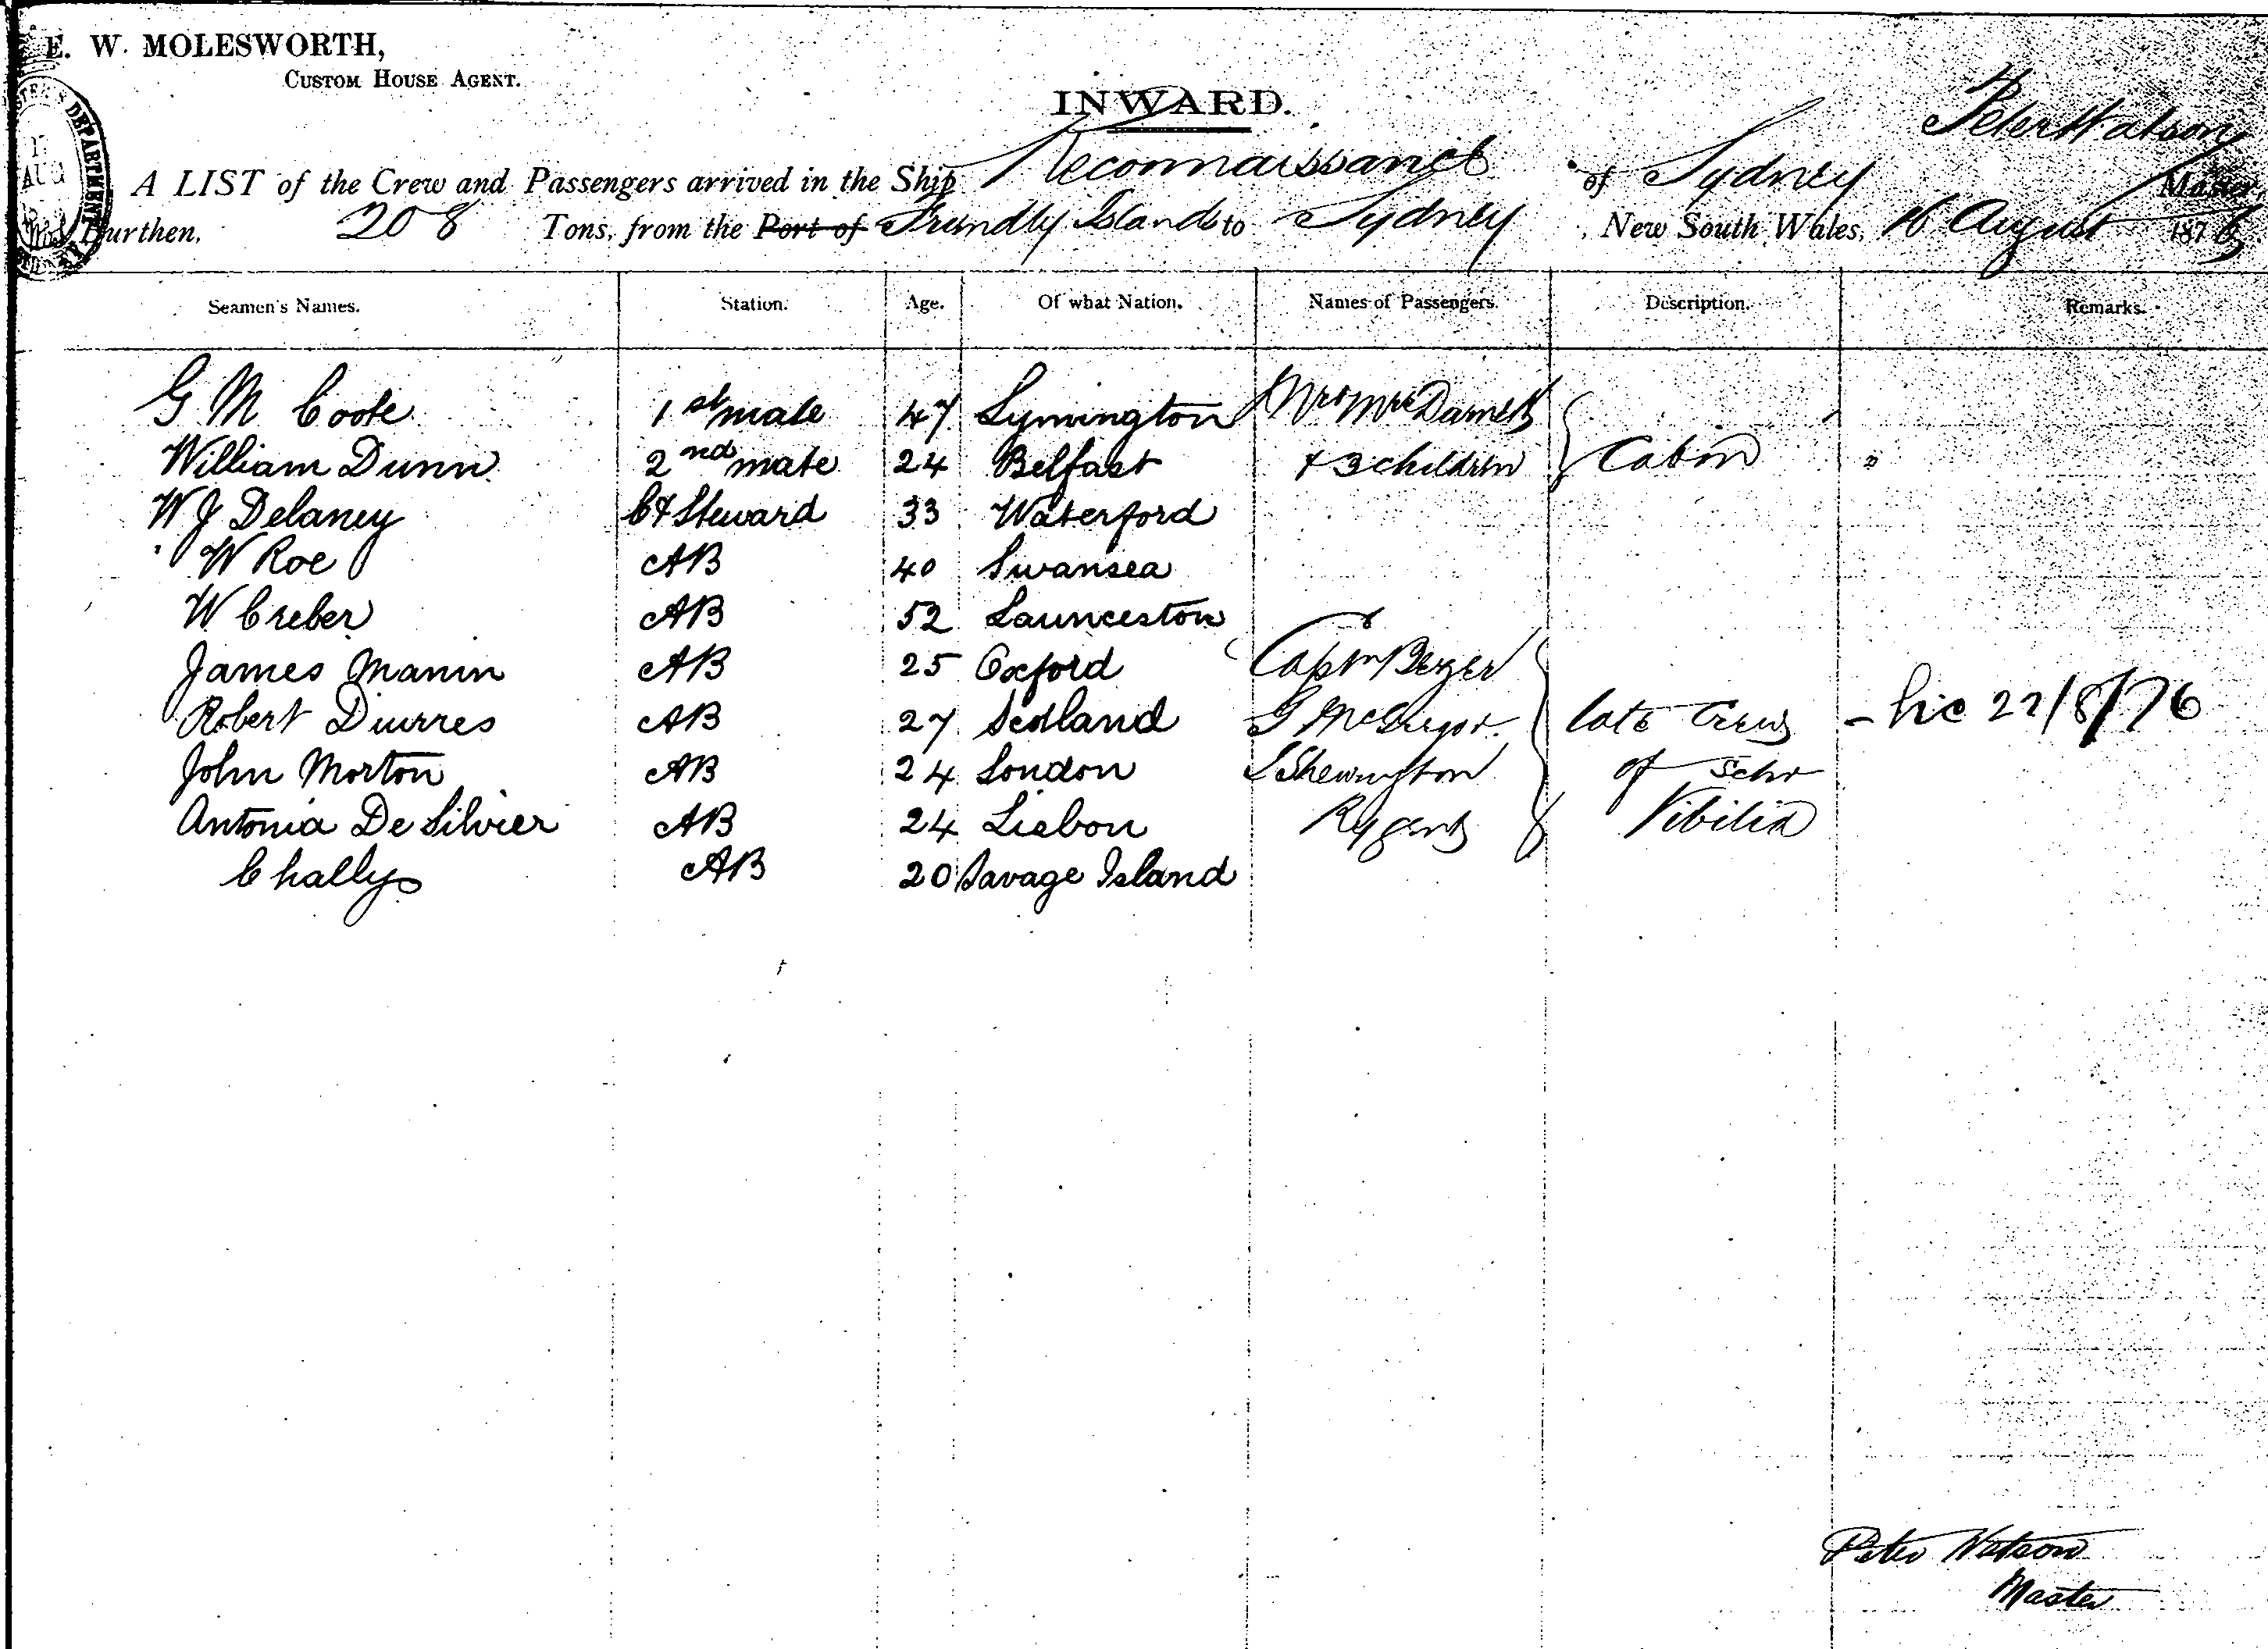 E. W. MOLESWORTH,
CUSTOM HOUSE AGENT.
DEPARTMENT
AUG
INWARD.
Peter Watson
A LIST of the Crew and Passengers arrived in the Ship Reconnaissance of Sydney Master,
Burthen, 208 Tons, from the Port of Friendly Islands to Sydney, New South Wales, 16 August 1876
Seamen's Names. Station. Age. Of what Nation. Names of Passengers. Description. Remarks.
G M Coote 1st mate 47 Lymington Mr & Mrs
William Dunn 2nd mate 24 Belfast + 3 children Cabin
W J Delaney C & Steward 33 Waterford
W Roe AB 40 Swansea
W Creber AB 52 Launceston
James Manin AB 25 Oxford Captn Berger
Robert Diurres AB 27 Scotland G McGregor late Crew 22/8/76
John Morton AB 24 London Shewington of Schr
Antonia De Silvier AB 24 Lisbon Vibilia
Challys AB 20 Savage Island
Peter Watson
Master